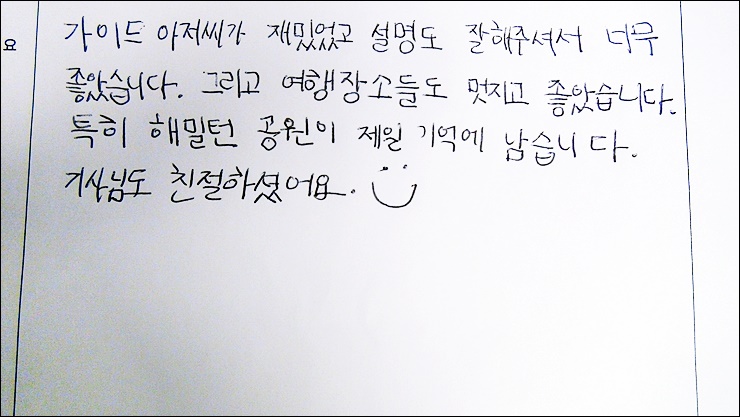 요
가이드 아저씨가 재밌었고 설명도 잘해주셔서 너무
좋았습니다. 그리고 여행장소들도 멋지고 좋았습니다.
특히 해밀턴 공원이 제일 기억에 남습니다.
기사님도 친절하셨어요.